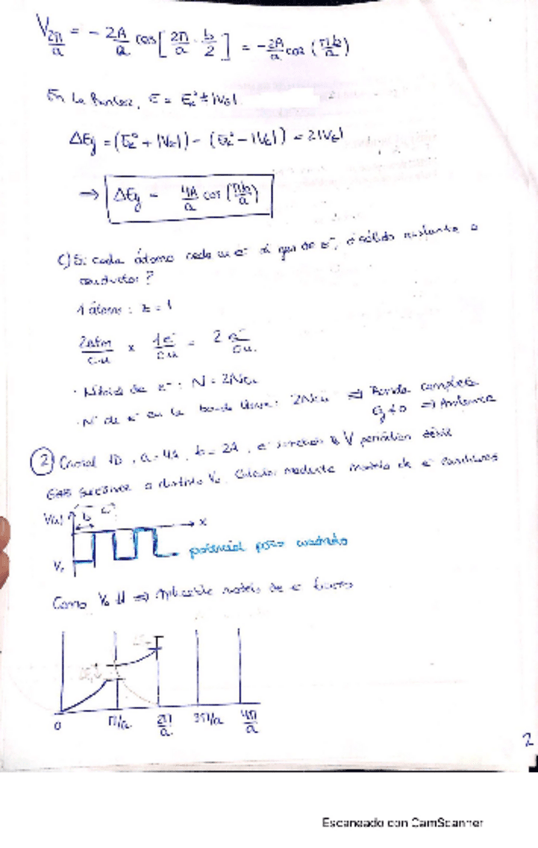 V_{2π/a} = -2A/a cos[2π/a · b/2] = -2A/a cos(πb/a)
En la frontera, E = E_k° ± |V_G|
ΔEg = (E_k° + |V_G|) - (E_k° - |V_G|) = 2|V_G|
→ ΔEg = 4A/a cos(πb/a)
C) Si cada átomo cede un e⁻ al gas de e⁻, ¿ sólido aislante o
conductor?
1 átomo: z = 1
2atm/c.u × 1e⁻/c.u = 2 e⁻/c.u.
· Número de e⁻: N = 2Ncu
· Nº de e⁻ en la banda : 2Ncu ⇒ Banda completa
Eg ≠ 0 ⇒ Aislante
② Cristal 1D, a = 4Å, b = 2Å, e⁻ sometidos a V periódico débil
V₀. Calcular mediante modelo de e⁻
V(x) b x
V₀ potencial pozo cuadrado
Como V₀ ↓↓ ⇒ Aplicable modelo de e⁻
0 π/a 2π/a 3π/a 4π/a
2
Escaneado con CamScanner